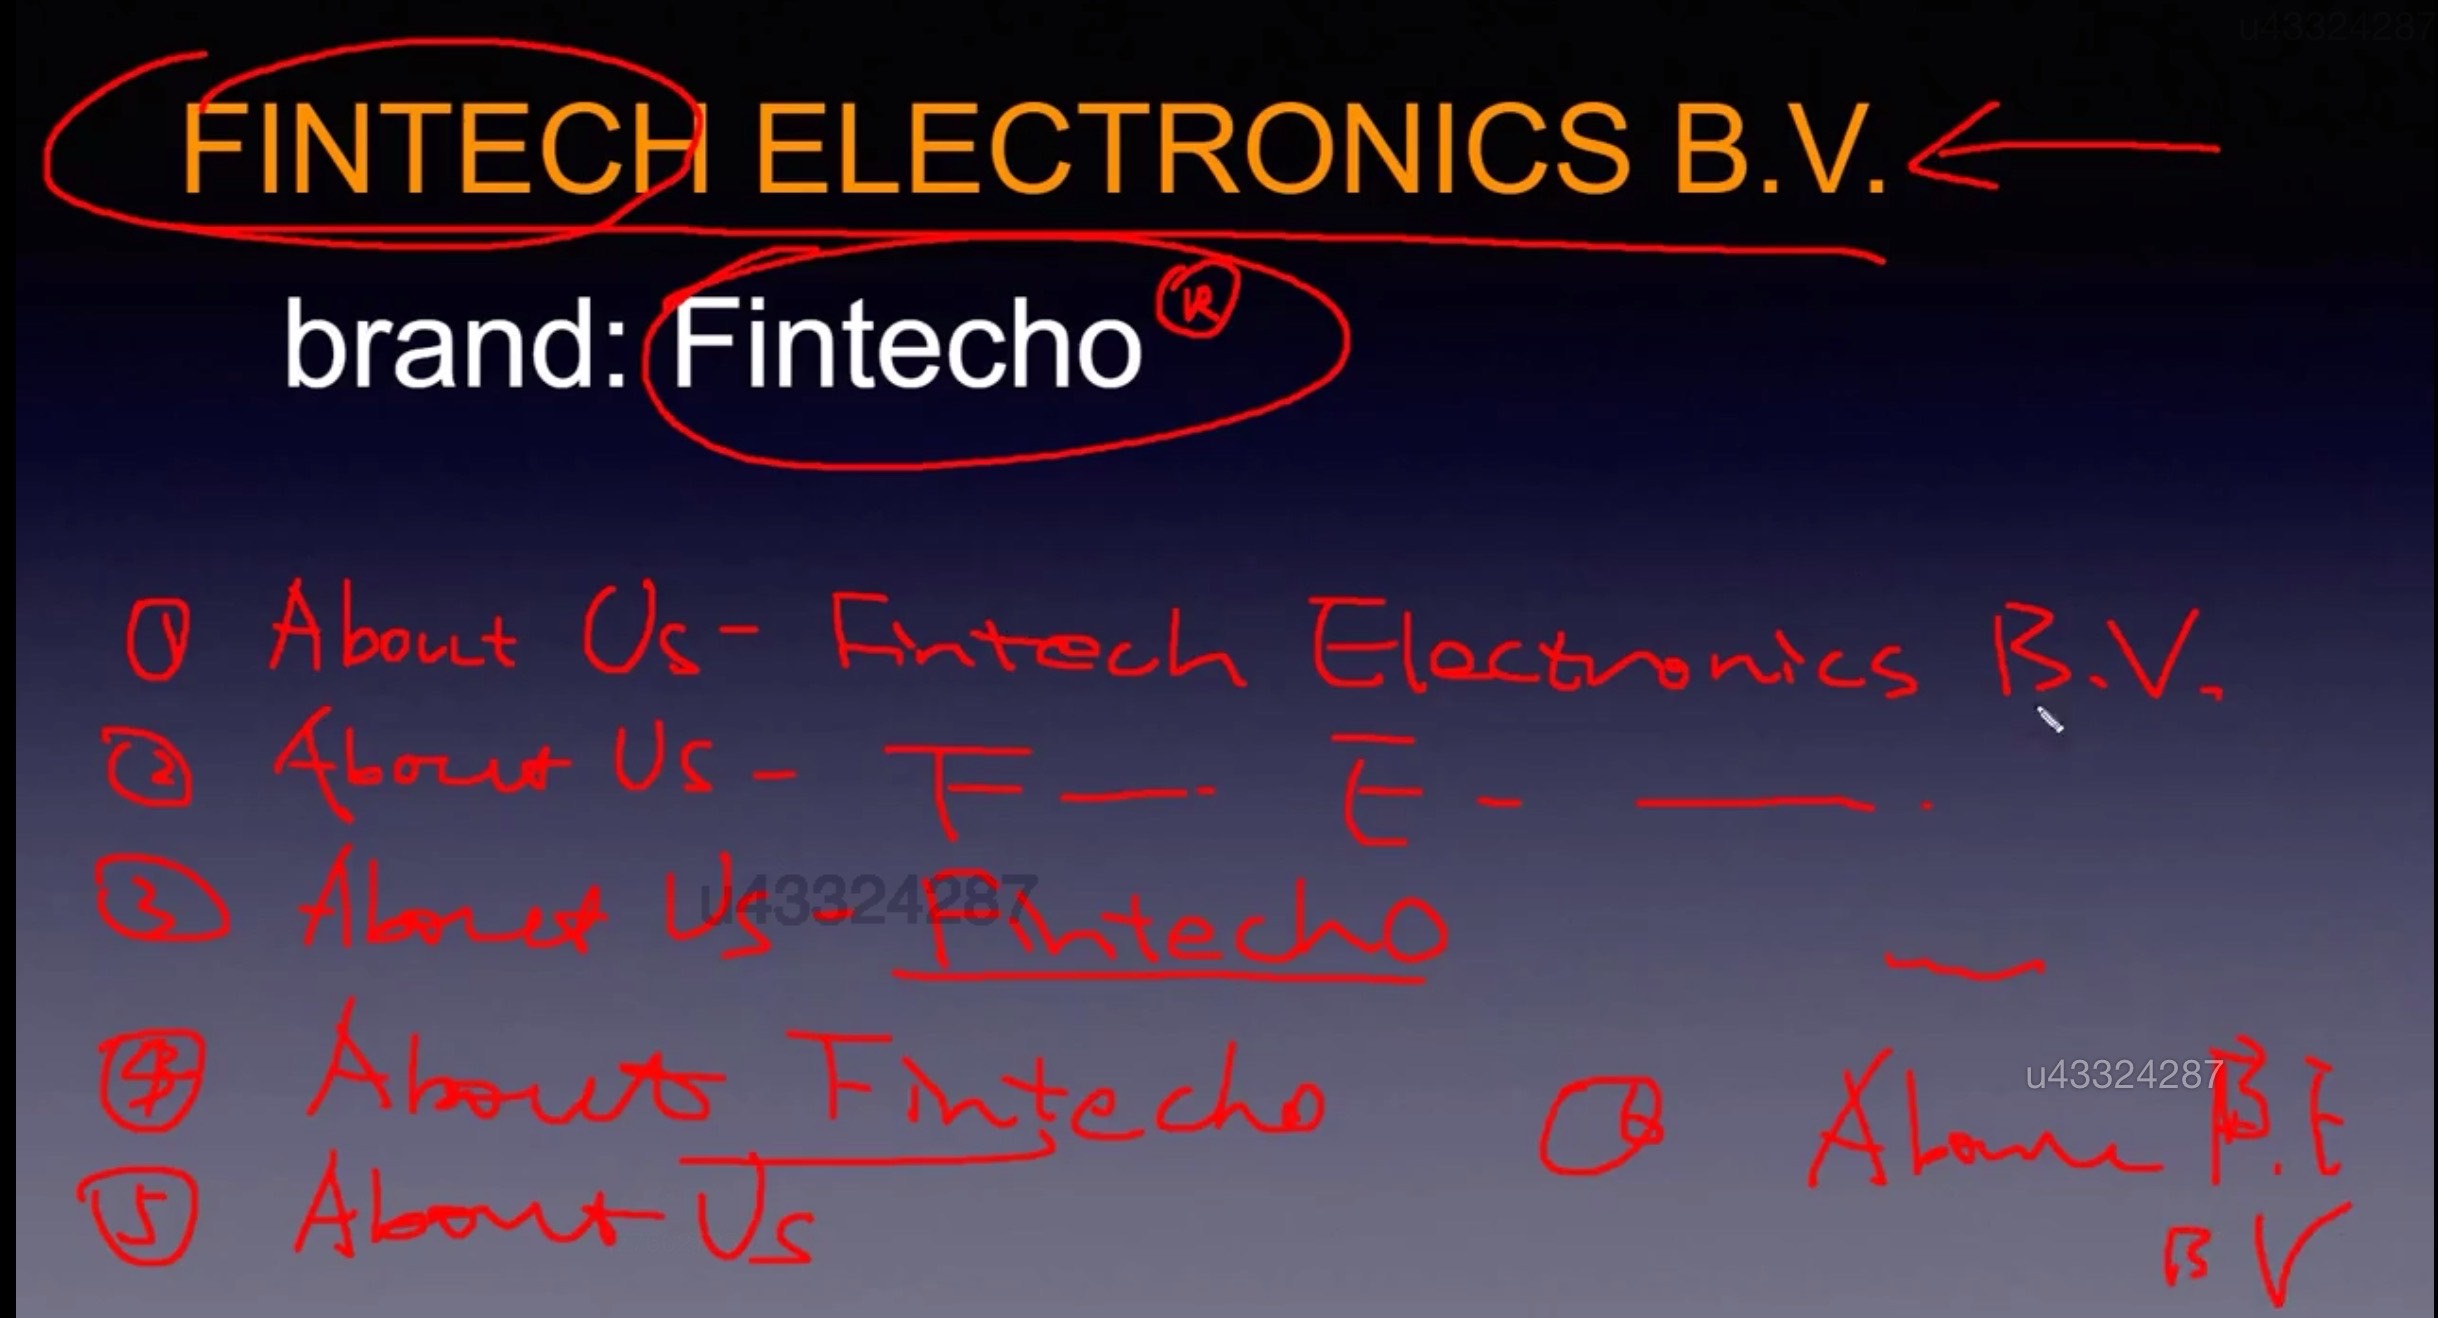 u43324287
FINTECH ELECTRONICS B.V.
brand: Fintecho ®
① About Us - Fintech Electronics B.V.
② About Us - F — - E - — .
③ About Us - Fintecho
u43324287
④ About Fintecho
u43324287
⑤ About Us
B V